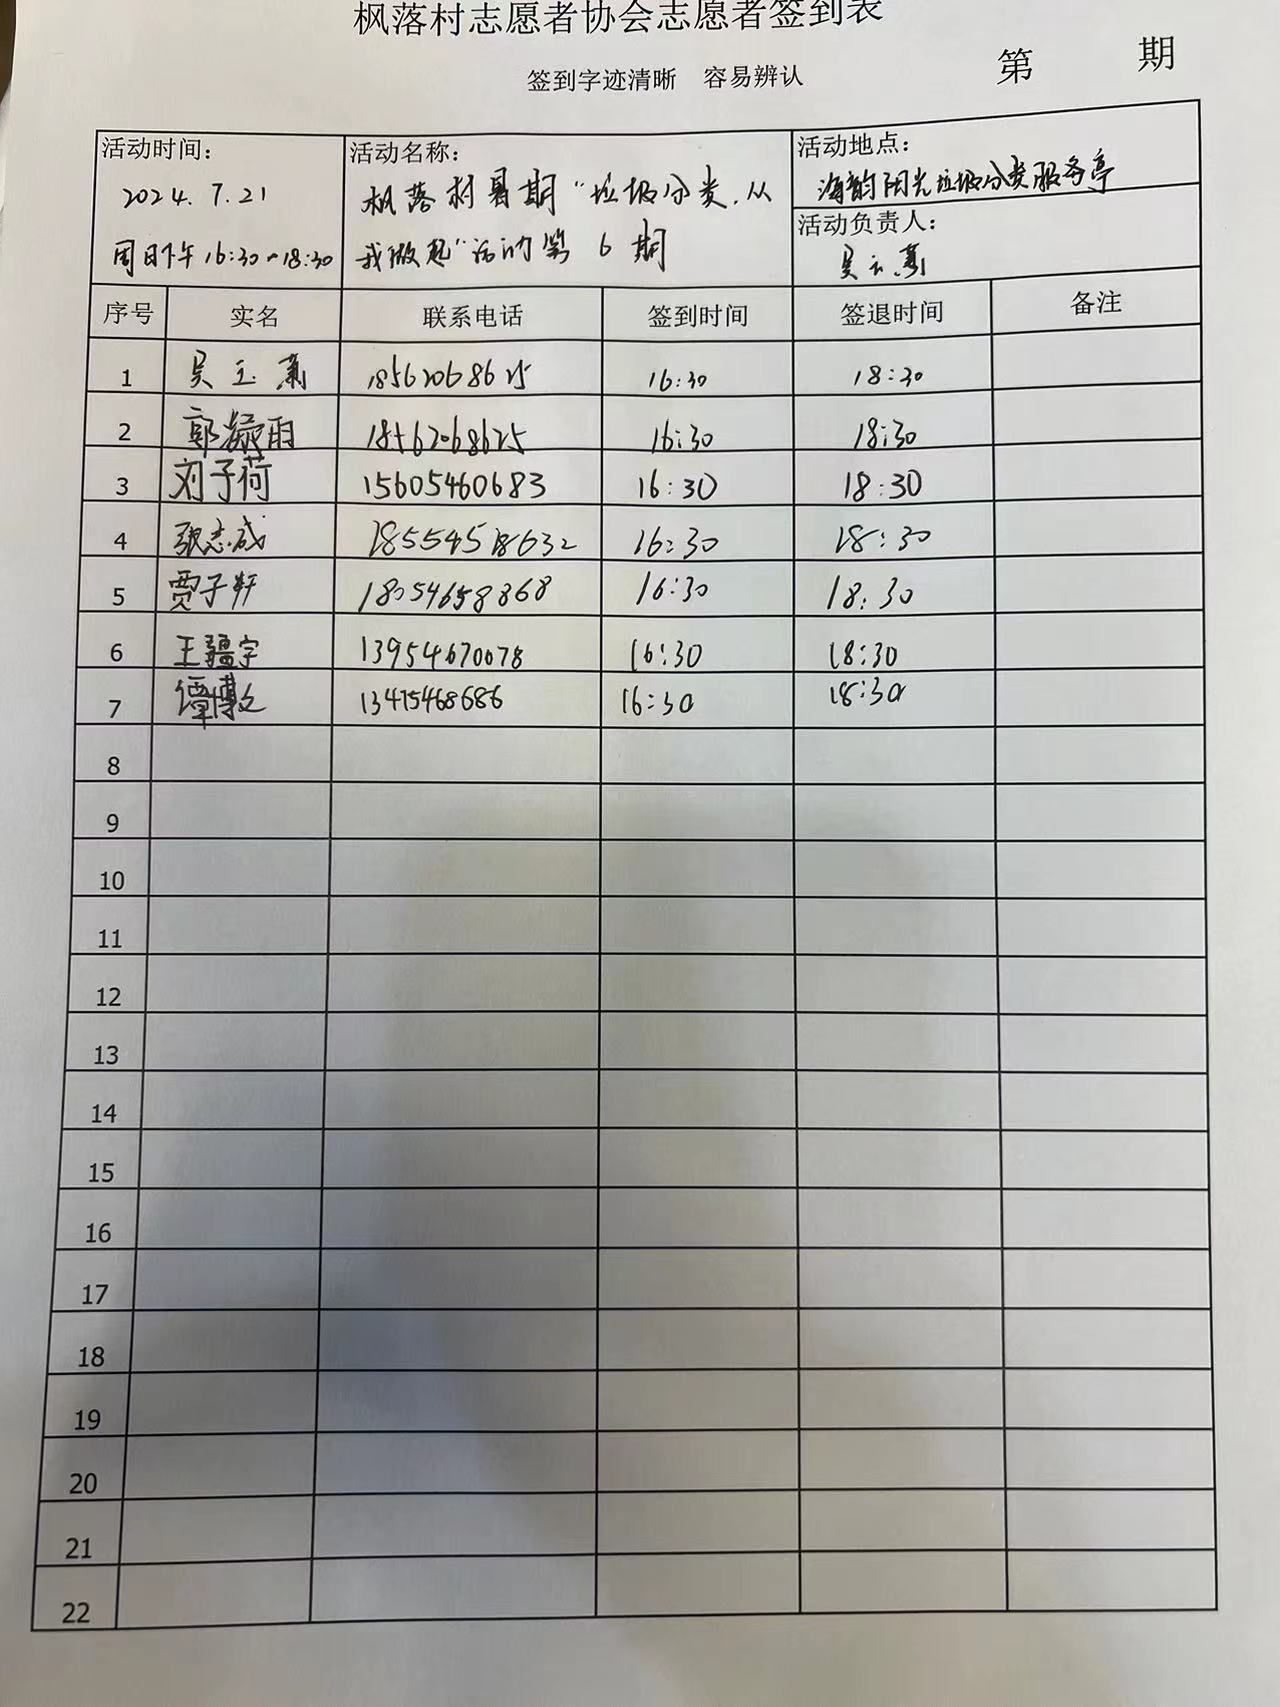 枫落村志愿者协会志愿者签到表
签到字迹清晰 容易辨认
第 期
活动时间：
2024.7.21
周日下午16:30~18:30
活动名称：
枫落村暑期“垃圾分类，从
我做起”活动第6期
活动地点：
海韵阳光垃圾分类服务亭
活动负责人：
吴玉蕭
序号 实名 联系电话 签到时间 签退时间 备注
1 吴玉蕭 18562068625 16:30 18:30
2 郭凝雨 18562068625 16:30 18:30
3 刘子荷 15605460683 16:30 18:30
4 张志成 18554518632 16:30 18:30
5 贾子轩 18054658868 16:30 18:30
6 王疆宇 13954670078 16:30 18:30
7 谭博文 13475468686 16:30 18:30
8
9
10
11
12
13
14
15
16
17
18
19
20
21
22